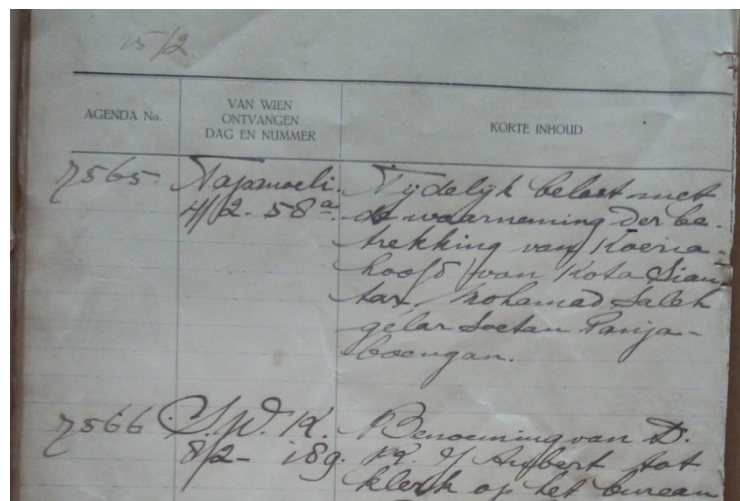 15/2.
AGENDA No.
VAN WIEN
ONTVANGEN
DAG EN NUMMER
KORTE INHOUD
7565. Tapanoeli. Tijdelijk belast met
4/2 - 58a. de waarneming der be-
trekking van Koeria-
hoofd van Kota Sian-
tar, Mohamad Saleh
gelar Soetan Panja-
boengan.
7566. S.W.K. Benoeming van D.
8/2 - 189. tot
klerk op het bureau